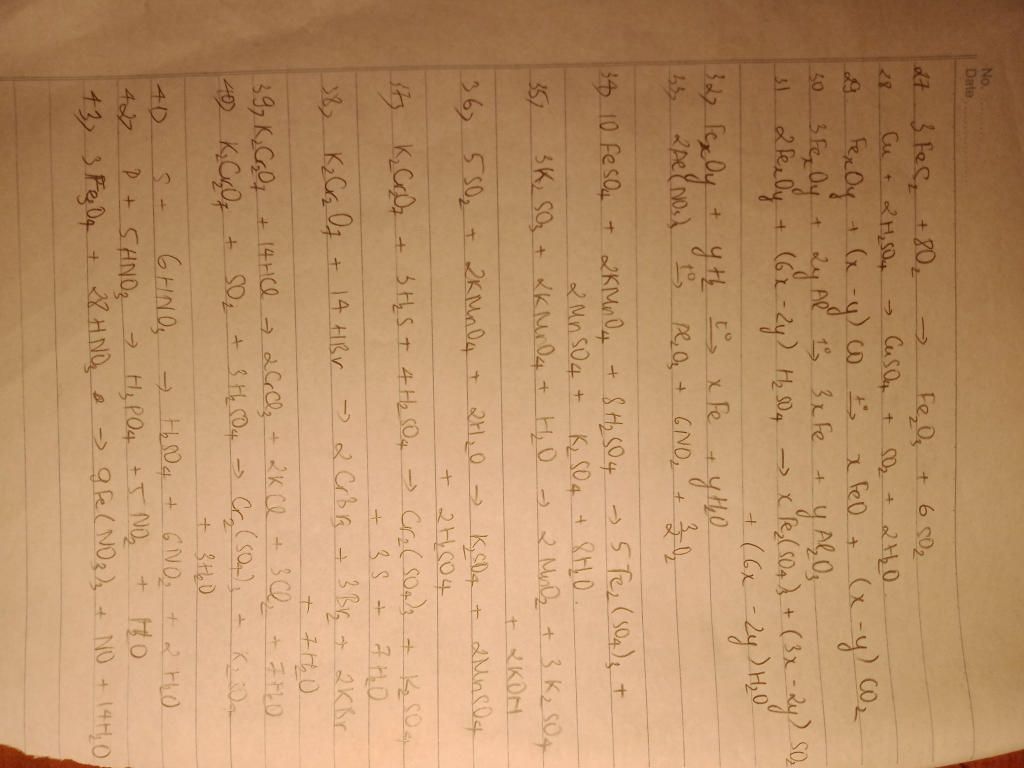 No.
Date
27 3FeS₂ + 8O₂ → Fe₂O₃ + 6SO₂
28 Cu + 2H₂SO₄ → CuSO₄ + SO₂ + 2H₂O
29 FeₓOy + (x-y) CO t°→ xFeO + (x-y) CO₂
30 3FeₓOy + 2yAl t°→ 3xFe + yAl₂O₃
31 2FeₓOy + (6x-2y) H₂SO₄ → xFe₂(SO₄)₃ + (3x-2y) SO₂
+ (6x - 2y) H₂O
32, FeₓOy + yH₂ t°→ xFe + yH₂O
33, 2Al(NO₃)₃ t°→ Al₂O₃ + 6NO₂ + 3/2 O₂
34, 10FeSO₄ + 2KMnO₄ + 8H₂SO₄ → 5Fe₂(SO₄)₃ +
2MnSO₄ + K₂SO₄ + 8H₂O.
35, 3K₂SO₃ + 2KMnO₄ + H₂O → 2MnO₂ + 3K₂SO₄
+ 2KOH
36, 5SO₂ + 2KMnO₄ + 2H₂O → K₂SO₄ + 2MnSO₄
+ 2H₂SO₄
37, K₂Cr₂O₇ + 3H₂S + 4H₂SO₄ → Cr₂(SO₄)₃ + K₂SO₄
+ 3S + 7H₂O
38, K₂Cr₂O₇ + 14HBr → 2CrBr₃ + 3Br₂ + 2KBr
+ 7H₂O
39, K₂Cr₂O₇ + 14HCl → 2CrCl₃ + 2KCl + 3Cl₂ + 7H₂O
40, K₂Cr₂O₇ + SO₂ + 3H₂SO₄ → Cr₂(SO₄)₃ + K₂SO₄
+ 3H₂O
41) S + 6HNO₃ → H₂SO₄ + 6NO₂ + 2H₂O
42, P + 5HNO₃ → H₃PO₄ + 5NO₂ + H₂O
43, 3Fe₃O₄ + 28HNO₃ → 9Fe(NO₃)₃ + NO + 14H₂O